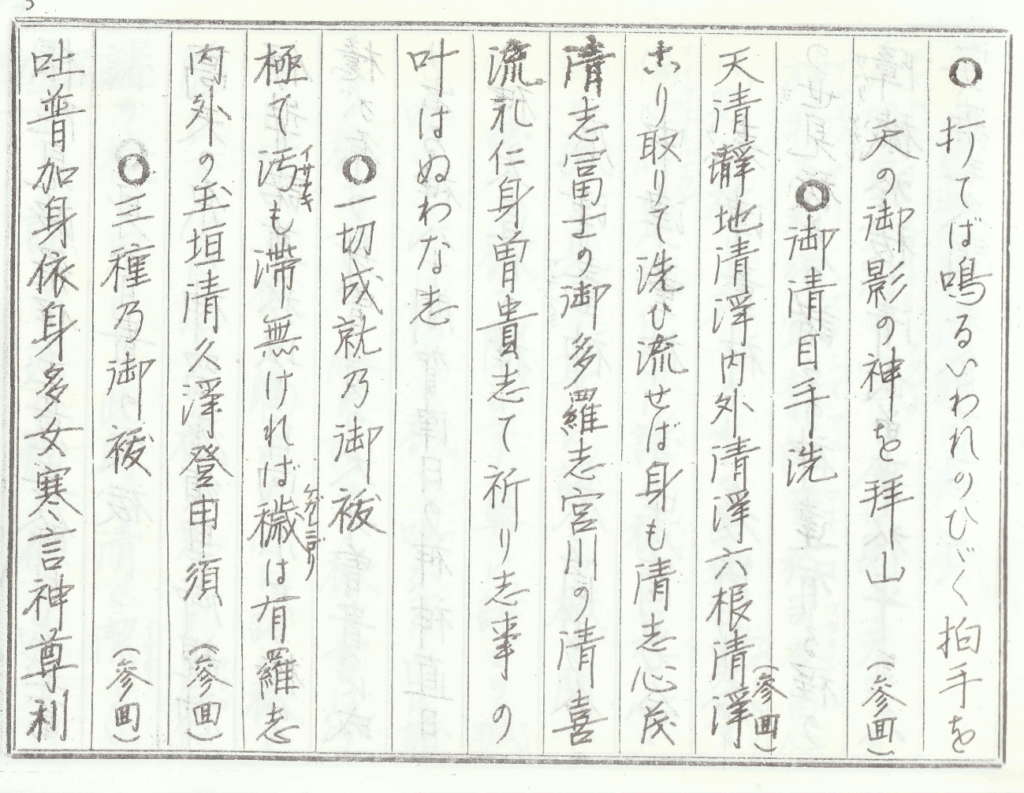 〇打てば鳴るいわれのひゞく拍手を
天の御影の神を拝山（参回）
〇御清目手洗
天清瀞地清浄内外清浄六根清浄（参回）
古り取りて洗ひ流せば身も清志心茂
清志冨士の御多羅志宮川の清喜
流礼仁身曽貴志て祈り志事の
叶はぬわな志
〇一切成就乃御祓
極て汚も滞無ければ穢は有羅志
内外の玉垣清久浄登申須（参回）
〇三種乃御祓（参回）
吐普加身依身多女寒言神尊利